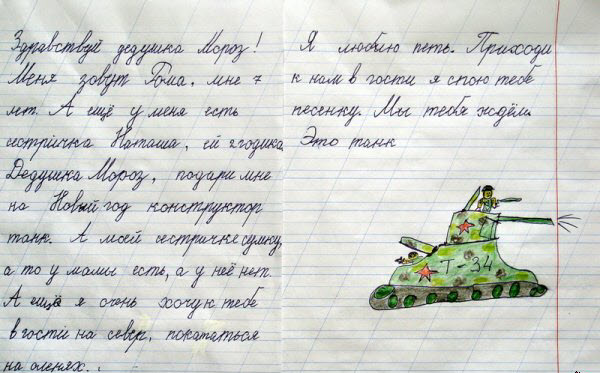 Здравствуй дедушка Мороз!
Меня зовут Рома, мне 7
лет. А ещё у меня есть
сестричка Наташа, ей 2 годика
Дедушка Мороз, подари мне
на Новый год конструктор
танк. А моей сестричке сумку,
а то у мамы есть, а у неё нет.
А ещё я очень хочу к тебе
в гости на север, покататься
на оленях.
Я люблю петь. Приходи
к нам в гости я спою тебе
песенку. Мы тебя ждём.
Это танк
Т-34